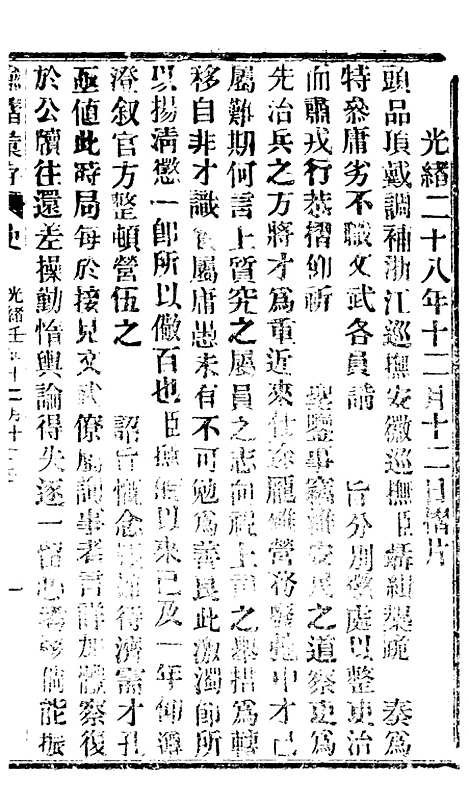 光緒二十八年十二月十二日摺片
頭品頂戴調補浙江巡撫安徽巡撫臣聶緝槼跪 奏為
特參庸劣不職文武各員請 旨分別懲處以整吏治
而肅戎行恭摺仰祈 聖鑒事竊維安民之道察吏為
先治兵之方將才為重近來仕途龐雜營務廢弛中才已
屬難期何言上質究之屬員之志向視上司之舉措為轉
移自非才識 屬庸愚未有不可勉為善良此激濁節所
以揚清懲一郎所以儆百也臣撫皖以來已及一年仰遵
澄叙官方整頓營伍之 詔旨懷念 得濟需才孔
亟值此時局每於接見文武僚屬詢事考言詳加體察復
於公牘往還差操勤惰輿論得失逐一 倘能振
光緒壬寅十二月十 一